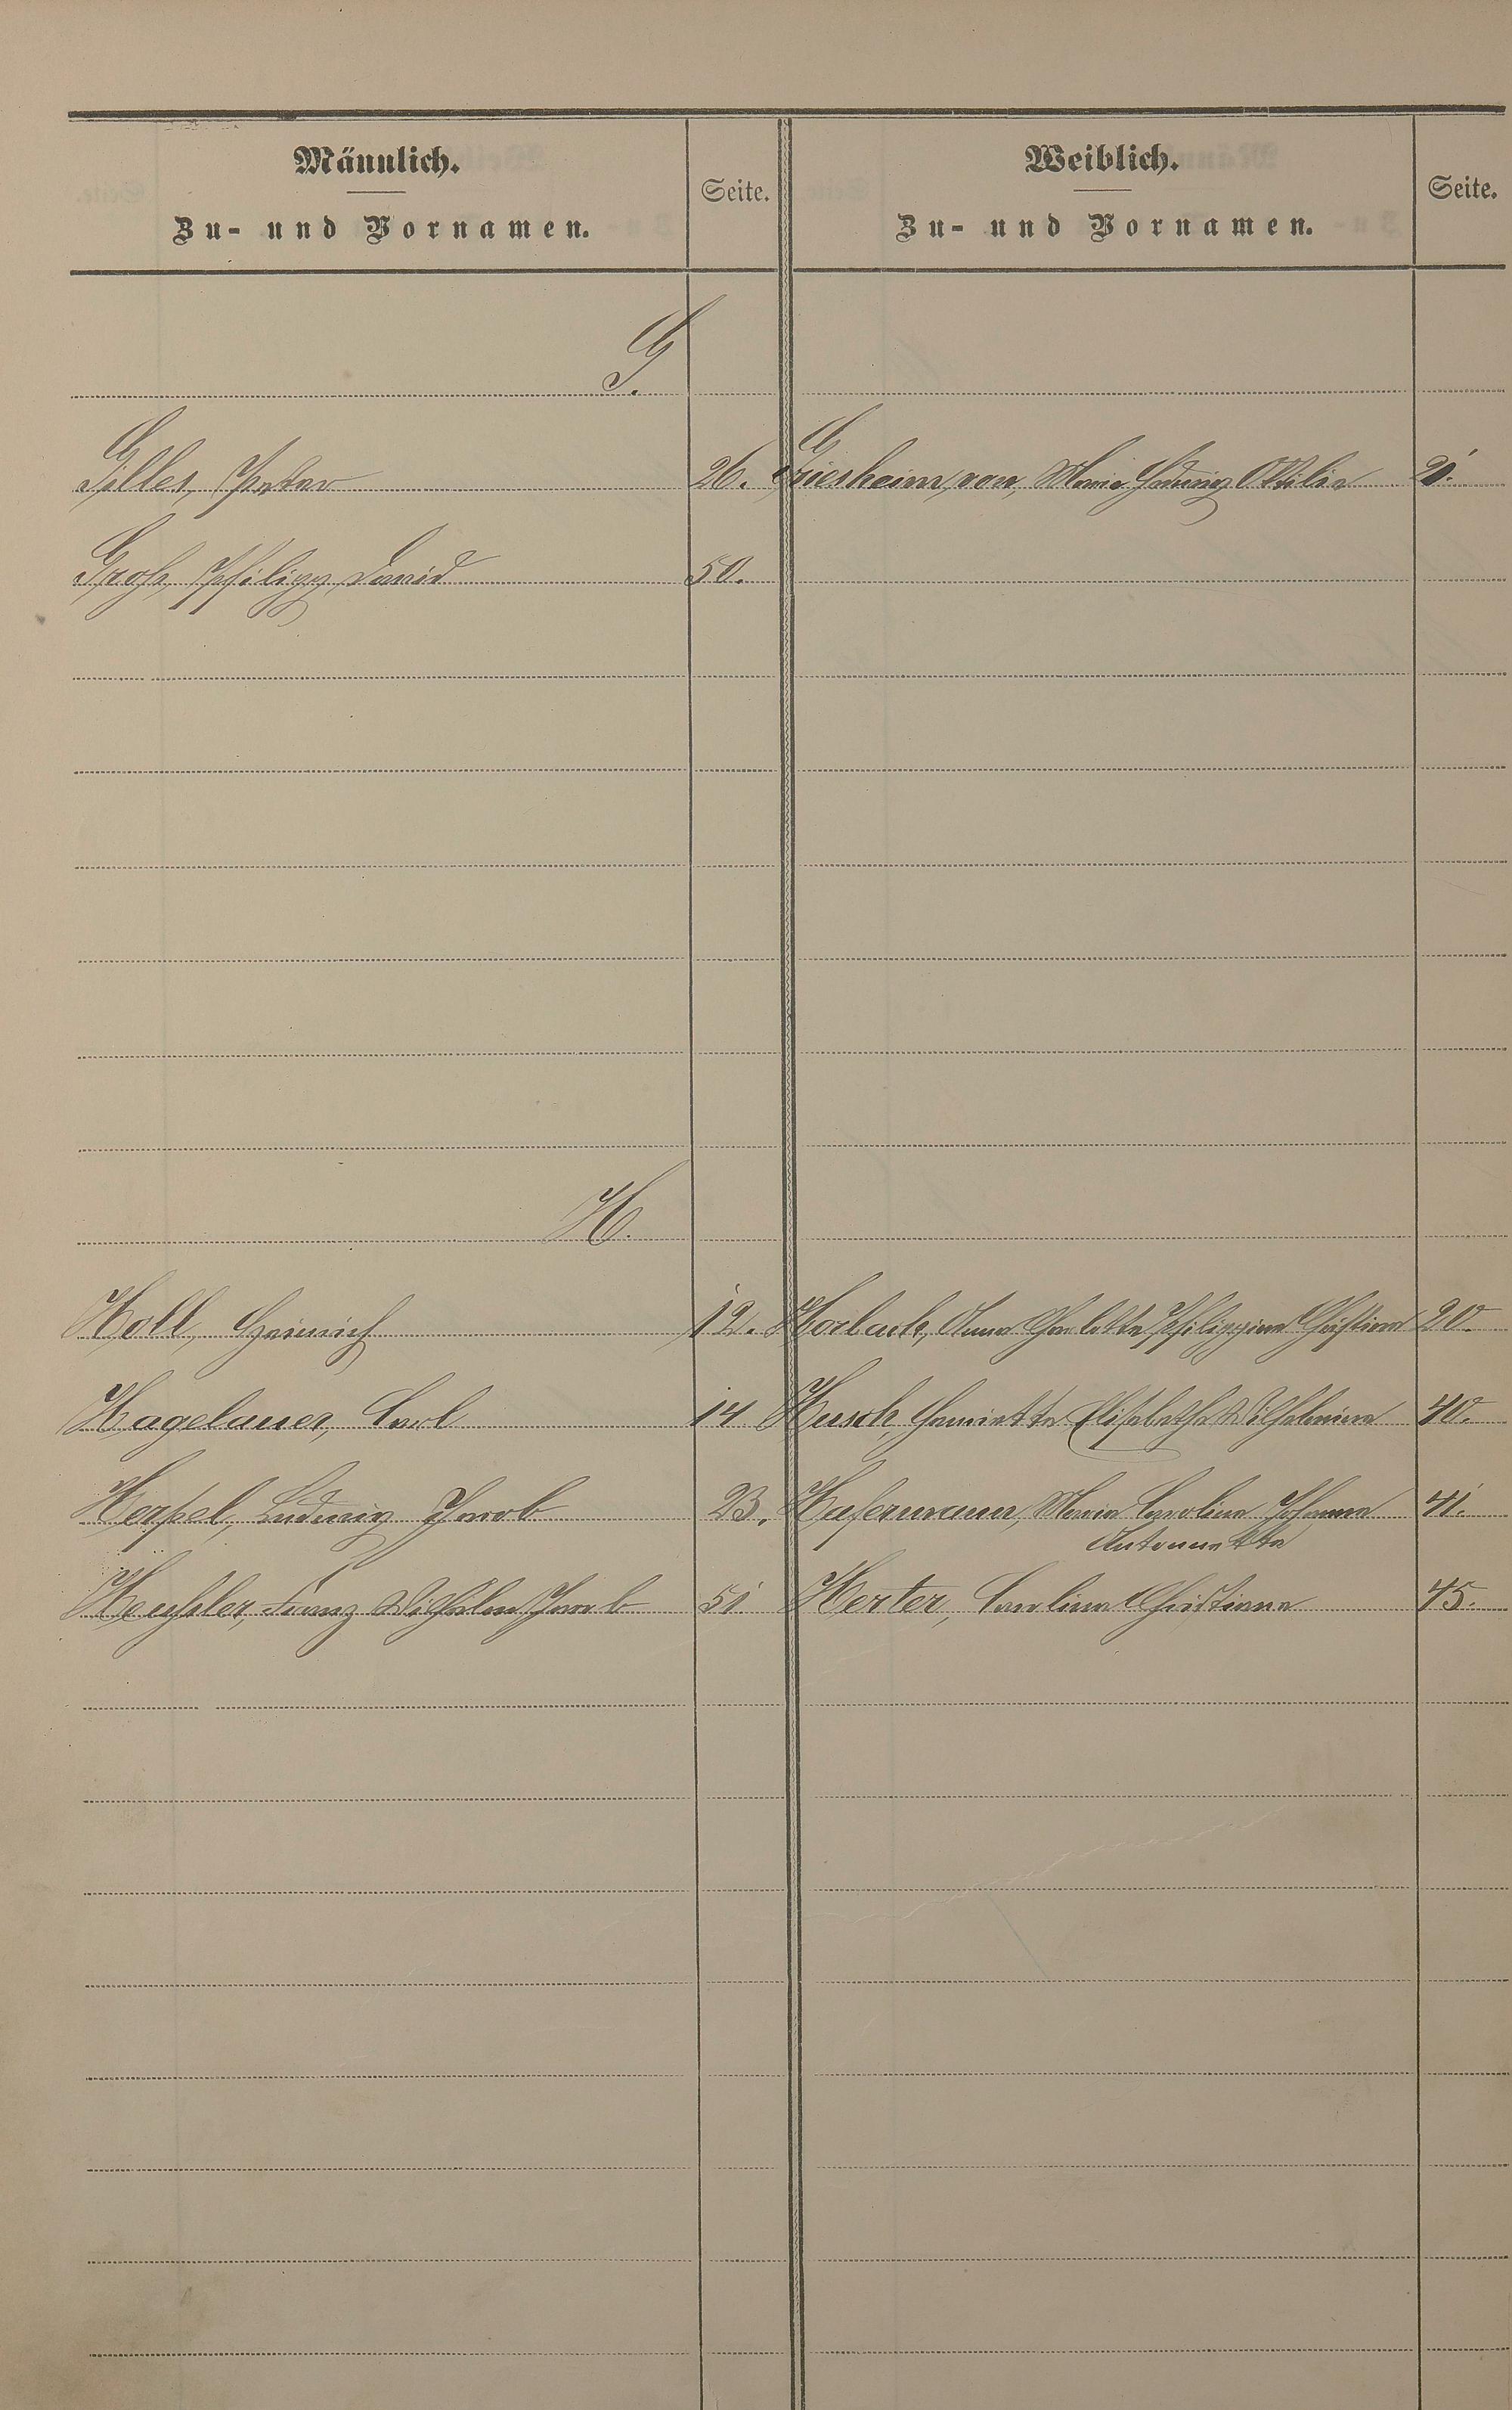 Männlich.
Zu- und Vornamen.
Seite.
Weiblich.
Zu- und Vornamen.
Seite.
G.
Gilles, Peter 26. Griesheim, von, Marie Hedwig Ottilie 21.
Groß, Philipp David 50.
H.
Holl, Heinrich 12. Horbach, Anna Charlotte Philippine Christiane 20.
Hagelauer, Carl 14. Husch, Henriette Elisabethe Wilhelmine 40.
Herpel, Ludwig Jacob 23. Hafermann, Maria Carolina Johanna 41.
Antonnette
Heußler, Franz Wilhelm Jacob 51. Herter, Carolina Christiane 45.